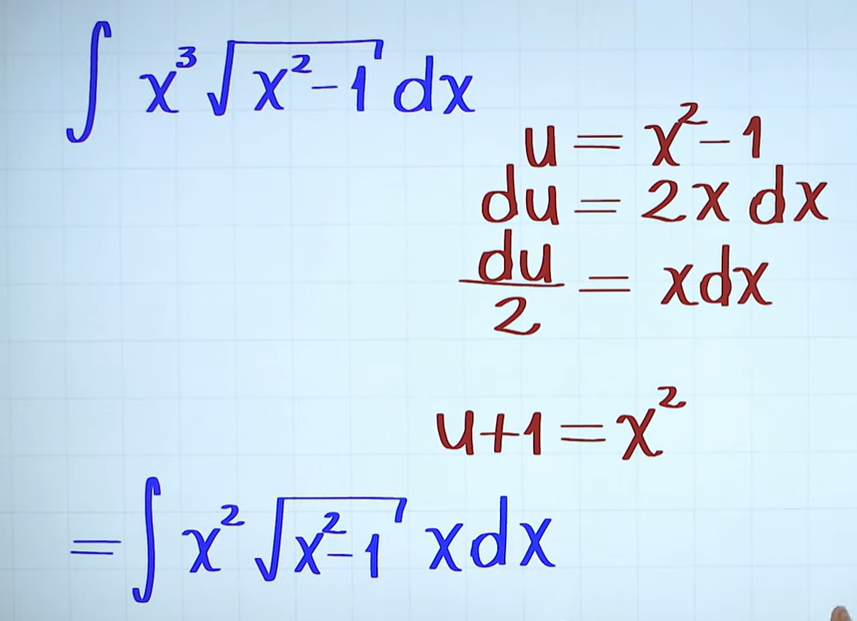 ∫ x³ √(x²-1) dx
u = x²-1
du = 2x dx
du/2 = xdx
u+1 = x²
= ∫ x² √(x²-1) xdx